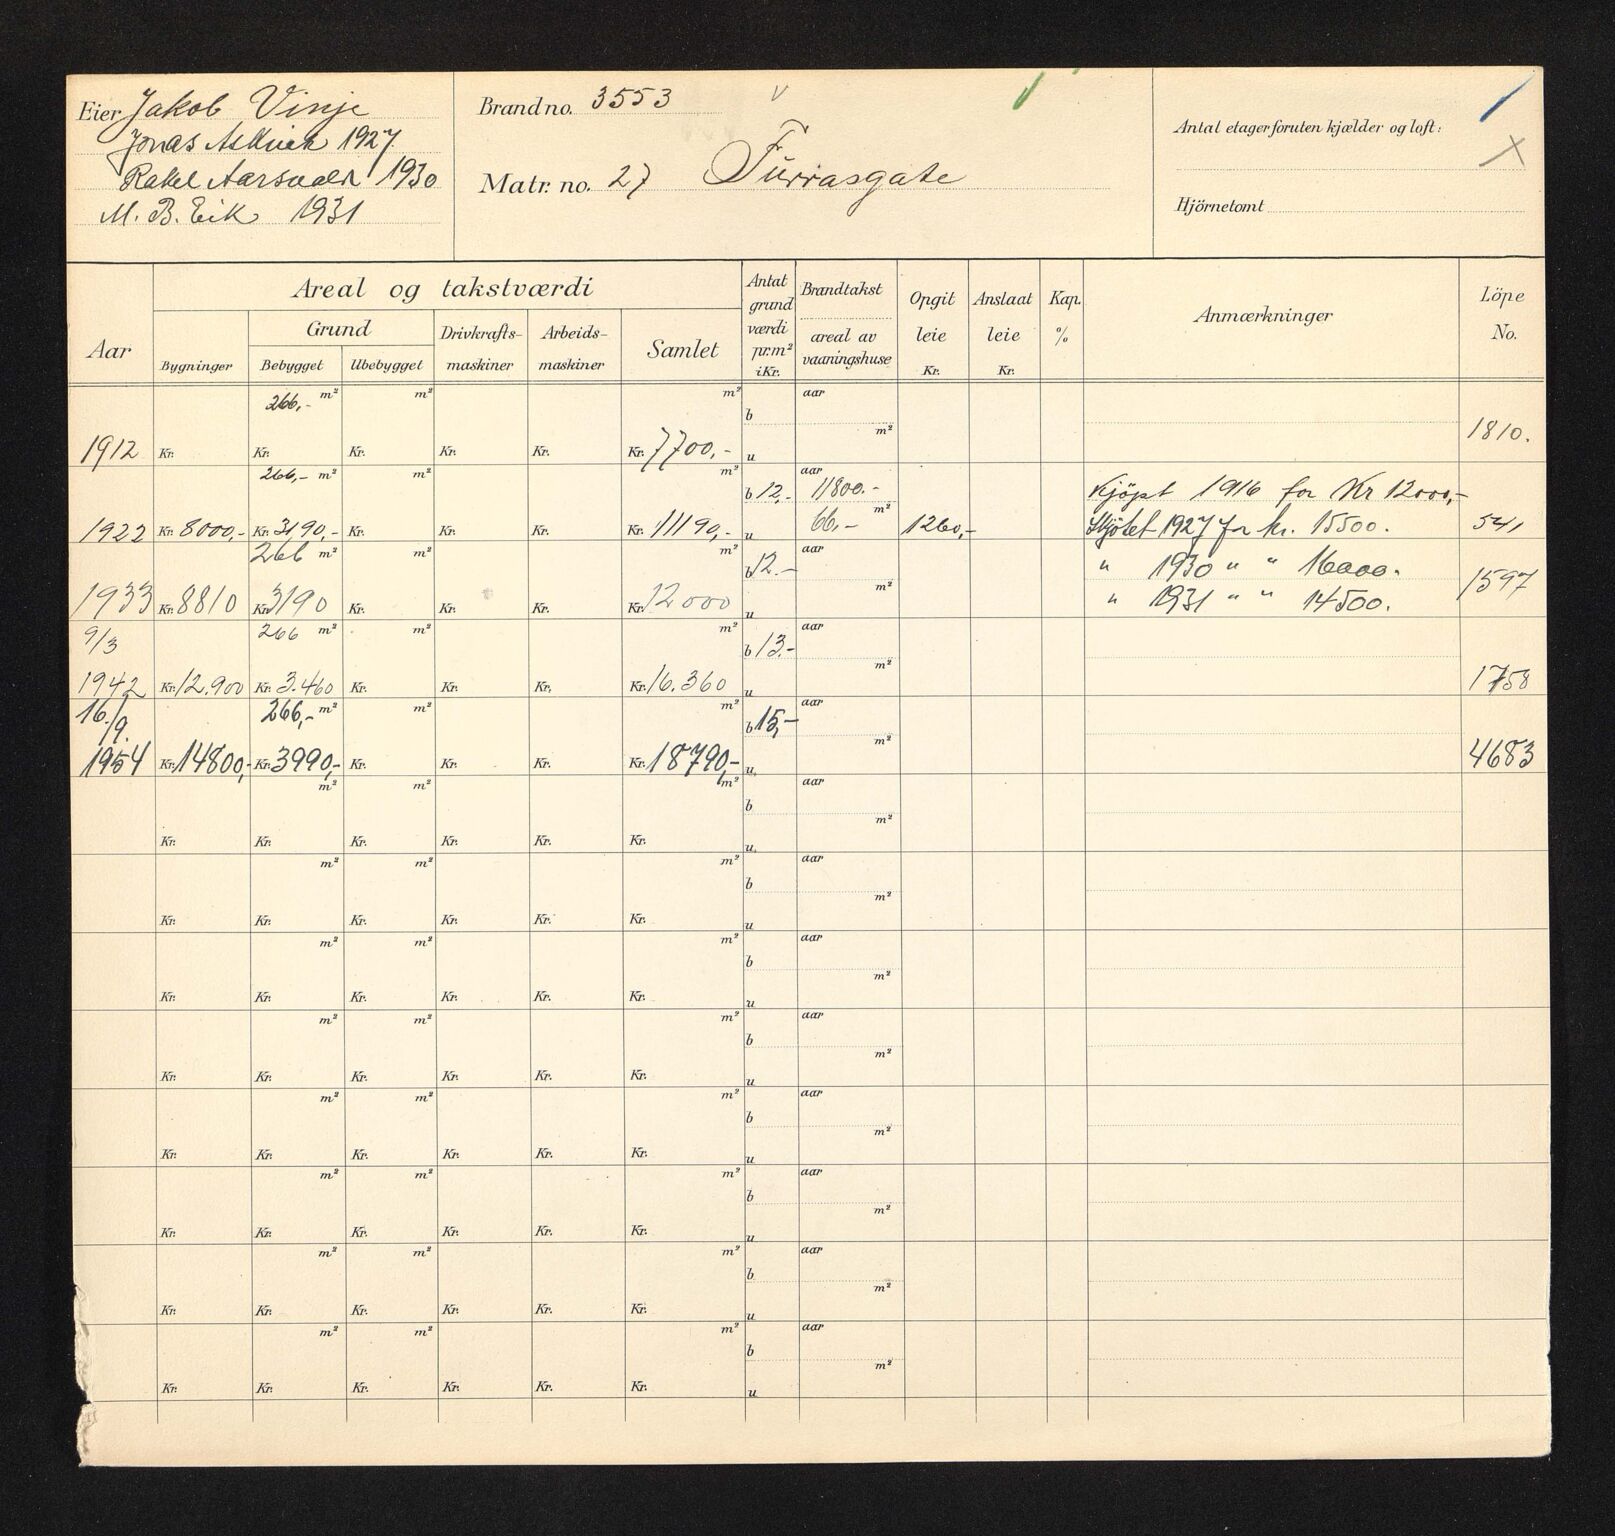 Eier Jakob Vinje
Jonas 1927
Rakel 1930
M. B. Eik 1931
Brandno. 3553
Matr. no. 27 Furrasgate
Antal etager foruten kjælder og loft:
Hjörnetomt
Aar
Areal og takstværdi
Bygninger
Grund
Bebygget
Ubebygget
Drivkrafts-
maskiner
Arbeids-
maskiner
Samlet
Antat
grund
værdi
pr.m²
i Kr.
Brandtakst
areal av
vaaningshuse
Opgit
leie
Kr.
Anslaat
leie
Kr.
Kap.
%
Anmærkninger
Löpe
No.
266,- m² m² m² b aar
1912 Kr. Kr. Kr. Kr. Kr. Kr. 7700,- u m² 1810.
266,- m² m² m² b 12,- aar 11800.- Kjöpt 1916 for Kr 12000,-
1922 Kr. 8000,- Kr. 3190,- Kr. Kr. Kr. Kr. 11190,- u 66,- m² 1260,- Skjötet 1927 for kr. 15500. 541
266 m² m² m² b 12.- aar " 1930 " " 16000.
1933 Kr. 8810 Kr. 3190 Kr. Kr. Kr. Kr. 12000 u m² " 1931 " " 14500. 1597
9/3 266 m² m² m² b 13.- aar
1942 Kr. 12.900 Kr. 3.460 Kr. Kr. Kr. Kr. 16.360 u m² 1758
16./9. 266,- m² m² m² b 15,- aar
1954 Kr. 14800,- Kr. 3990,- Kr. Kr. Kr. Kr. 18790,- u m² 4683
m² m² m² b aar
Kr. Kr. Kr. Kr. Kr. Kr. u m²
m² m² m² b aar
Kr. Kr. Kr. Kr. Kr. Kr. u m²
m² m² m² b aar
Kr. Kr. Kr. Kr. Kr. Kr. u m²
m² m² m² b aar
Kr. Kr. Kr. Kr. Kr. Kr. u m²
m² m² m² b aar
Kr. Kr. Kr. Kr. Kr. Kr. u m²
m² m² m² b aar
Kr. Kr. Kr. Kr. Kr. Kr. u m²
m² m² m² b aar
Kr. Kr. Kr. Kr. Kr. Kr. u m²
m² m² m² b aar
Kr. Kr. Kr. Kr. Kr. Kr. u m²